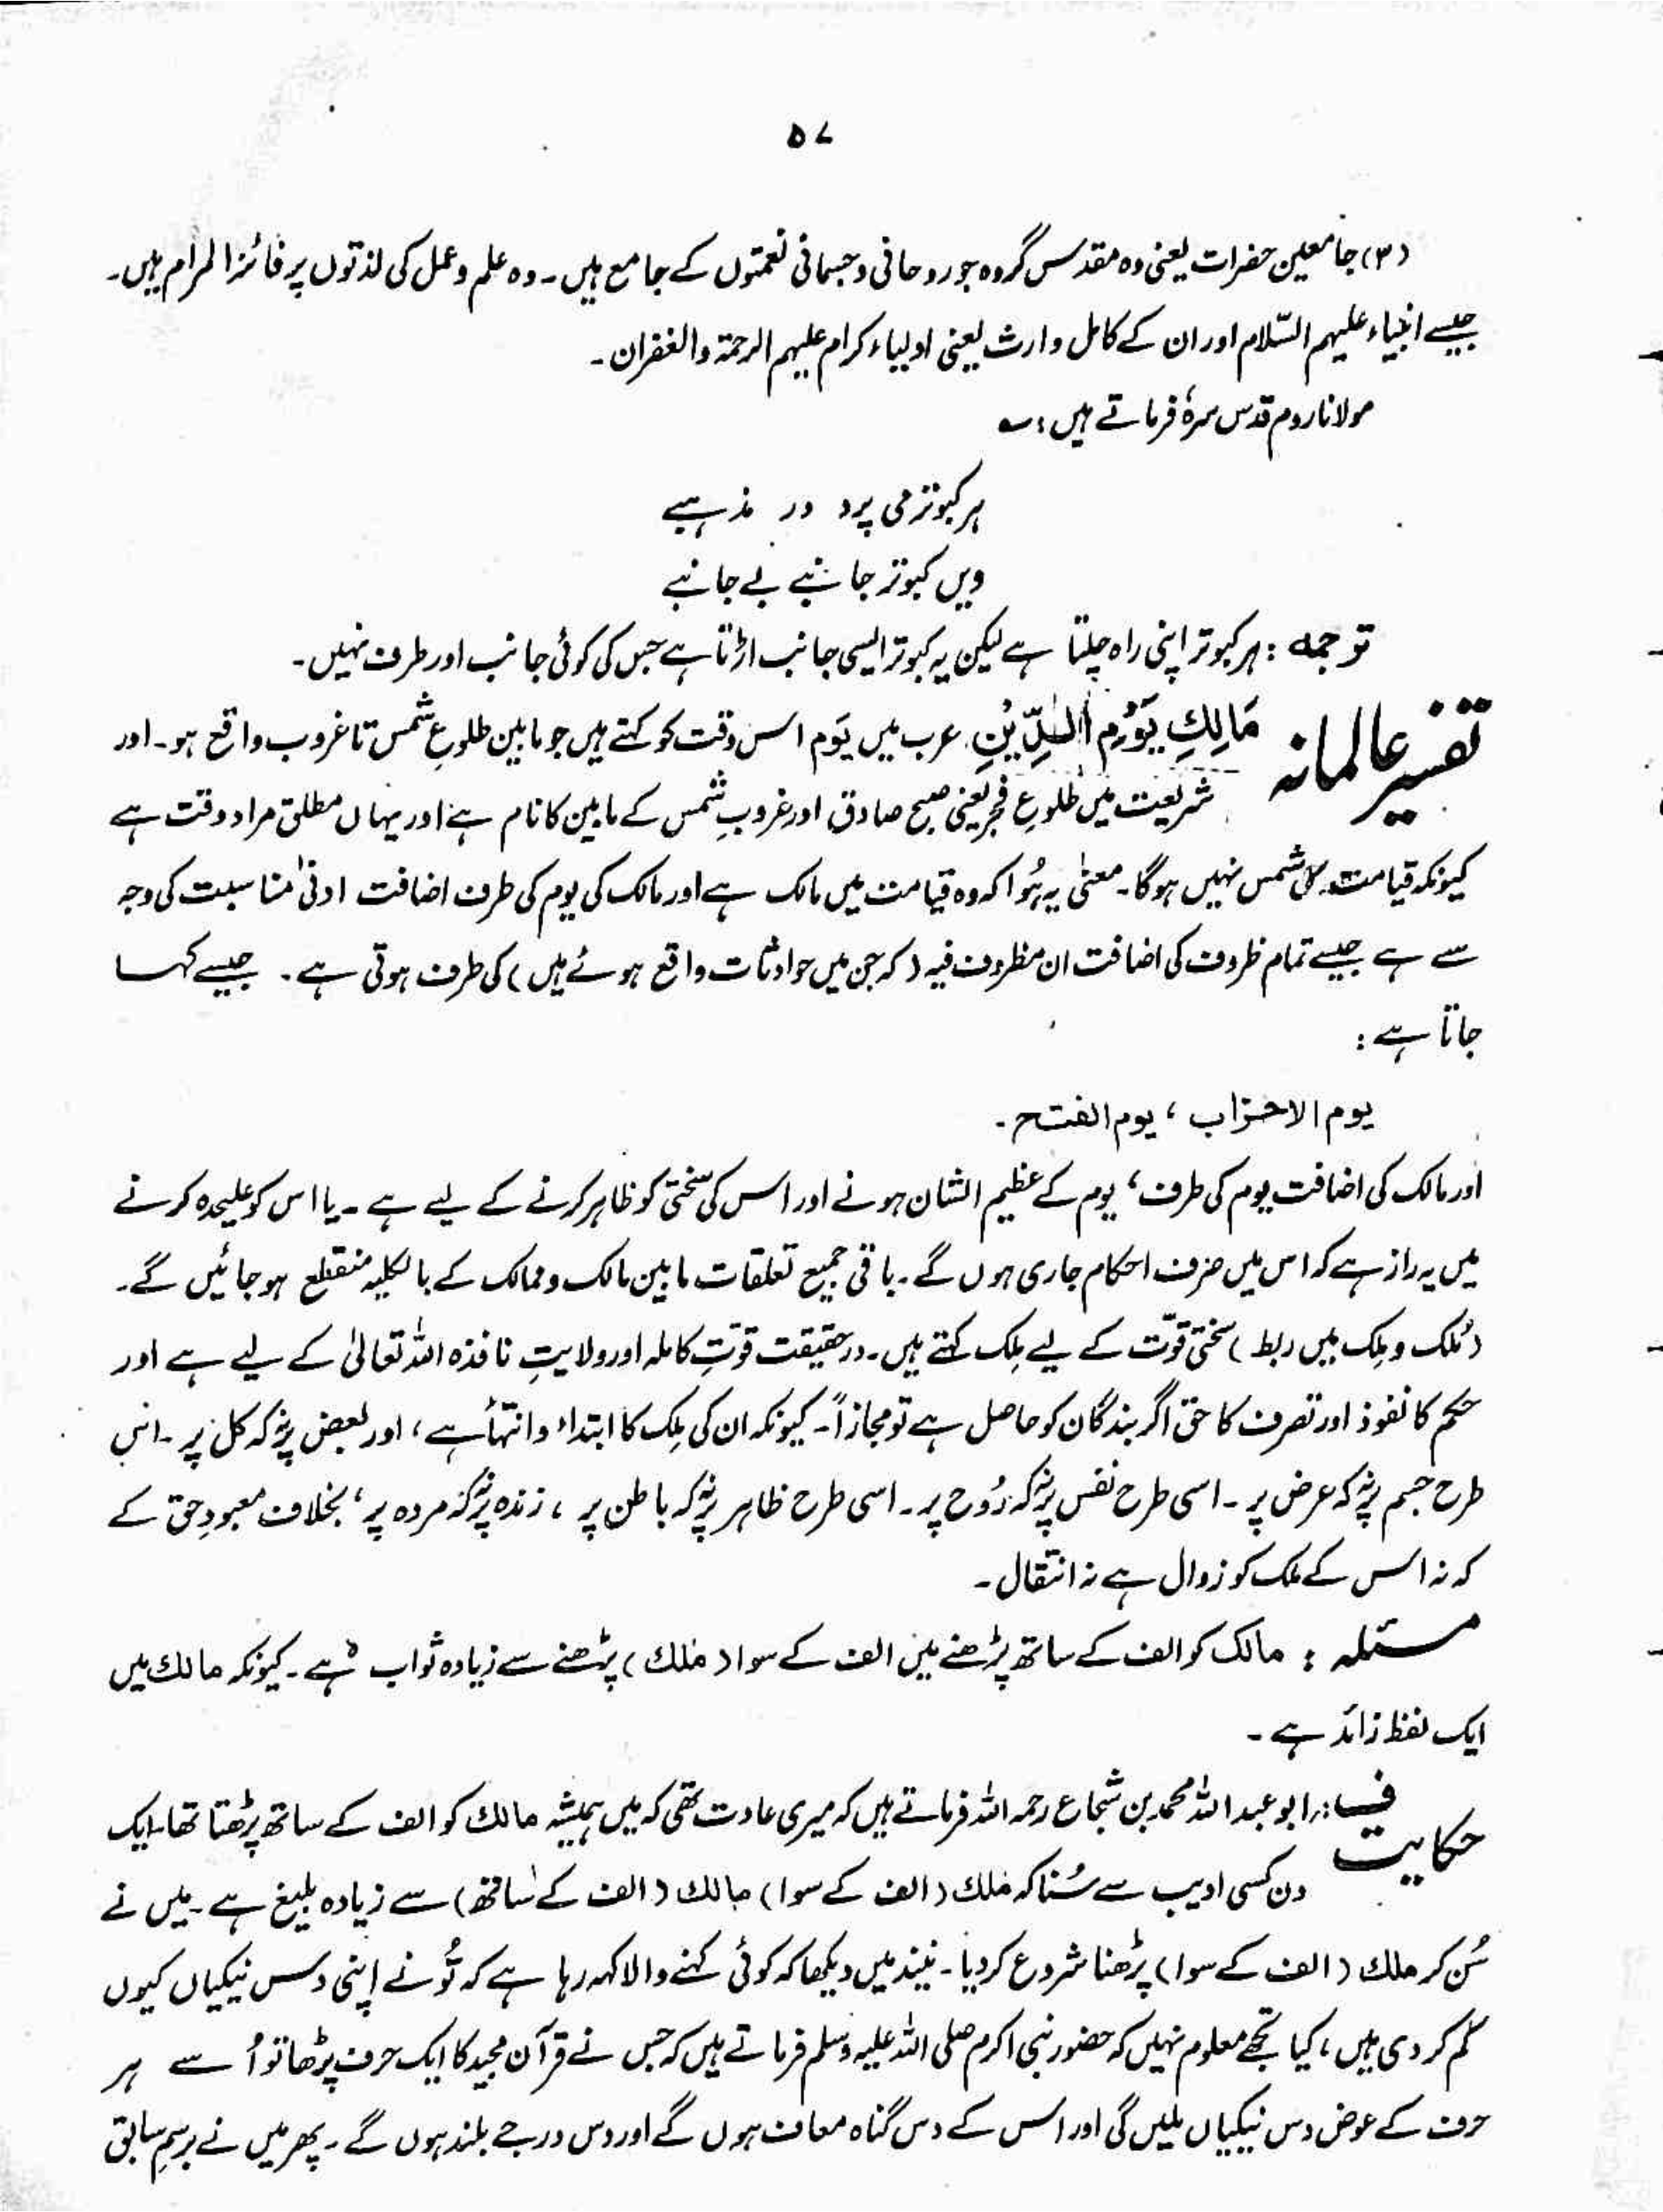 ۵۷
(۳) جامعین حضرات یعنی وہ مقدس گروہ جو روحانی و جسمانی نعمتوں کے جامع ہیں ۔ وہ علم و عمل کی لذتوں پر فائز المرام ہیں ۔
جیسے انبیاء علیہم السّلام اور ان کے کامل وارث یعنی اولیاء کرام علیہم الرحمۃ والغفران ۔
مولانا روم قدس سرہٗ فرماتے ہیں : ؎
ہر کبوتر می پرد در مذہبے
ویں کبوتر جانبے بے جانبے
ترجمہ : ہر کبوتر اپنی راہ چلتا ہے لیکن یہ کبوتر ایسی جانب اڑتا ہے جس کی کوئی جانب اور طرف نہیں ۔
تفسیر عالمانہ مَالِكِ يَوْمِ الدِّيْنِ عرب میں یَوم اس وقت کو کہتے ہیں جو مابین طلوعِ شمس تا غروب واقع ہو ۔ اور
شریعت میں طلوعِ فجر یعنی صبح صادق اور غروبِ شمس کے مابین کا نام ہے اور یہاں مطلق مراد وقت ہے
کیونکہ قیامت شمس نہیں ہوگا ۔ معنٰی یہ ہُوا کہ وہ قیامت میں مالک ہے اور مالک کی یوم کی طرف اضافت ادنیٰ مناسبت کی وجہ
سے ہے جیسے تمام ظروف کی اضافت ان مظروف فیہ (کہ جن میں حوادثات واقع ہوئے ہیں) کی طرف ہوتی ہے ۔ جیسے کہا
جاتا ہے :
یوم الاحزاب ، یوم الفتح ۔
اور مالک کی اضافت یوم کی طرف ، یوم کے عظیم الشان ہونے اور اس کی سختی کو ظاہر کرنے کے لیے ہے ۔ یا اس کو علیحدہ کرنے
میں یہ راز ہے کہ اس میں صرف احکام جاری ہوں گے ۔ باقی جمیع تعلقات مابین مالک و ممالک کے بالکلیہ منقطع ہوجائیں گے ۔
(مُلک و مِلک میں ربط) سختی قوّت کے لیے مِلک کہتے ہیں ۔ درحقیقت قوّتِ کاملہ اور ولایتِ نافذہ اللہ تعالیٰ کے لیے ہے اور
حکم کا نفوذ اور تصرف کا حق اگر بندگان کو حاصل ہے تو مجازاً ۔ کیونکہ ان کی مِلک کا ابتداء و انتہا ہے ، اور بعض پر نہ کہ کل پر ۔ اسی
طرح جسم پر نہ کہ عرض پر ۔ اسی طرح نفس پر نہ کہ رُوح پر ۔ اسی طرح ظاہر پر نہ کہ باطن پر ، زندہ پر نہ کہ مردہ پر ، بخلاف معبودِ حق کے
کہ نہ اس کے مُلک کو زوال ہے نہ انتقال ۔
مسئلہ : مالک کو الف کے ساتھ پڑھنے میں الف کے سوا (مَلك) پڑھنے سے زیادہ ثواب ہے ۔ کیونکہ مالك میں
ایک لفظ زائد ہے ۔
حکایت ف : ابو عبداللہ محمد بن شجاع رحمہ اللہ فرماتے ہیں کہ میری عادت تھی کہ میں ہمیشہ مالك کو الف کے ساتھ پڑھتا تھا ایک
دن کسی ادیب سے سُنا کہ مَلك (الف کے سوا) مالك (الف کے ساتھ) سے زیادہ بلیغ ہے ۔ میں نے
سُن کر ملك (الف کے سوا) پڑھنا شروع کردیا ۔ نیند میں دیکھا کہ کوئی کہنے والا کہہ رہا ہے کہ تُو نے اپنی دس نیکیاں کیوں
کم کر دی ہیں ، کیا تجھے معلوم نہیں کہ حضور نبی اکرم صلی اللہ علیہ وسلم فرماتے ہیں کہ جس نے قرآن مجید کا ایک حرف پڑھا تو اُسے ہر
حرف کے عوض دس نیکیاں ملیں گی اور اس کے دس گناہ معاف ہوں گے اور دس درجے بلند ہوں گے ۔ پھر میں نے برسمِ سابق